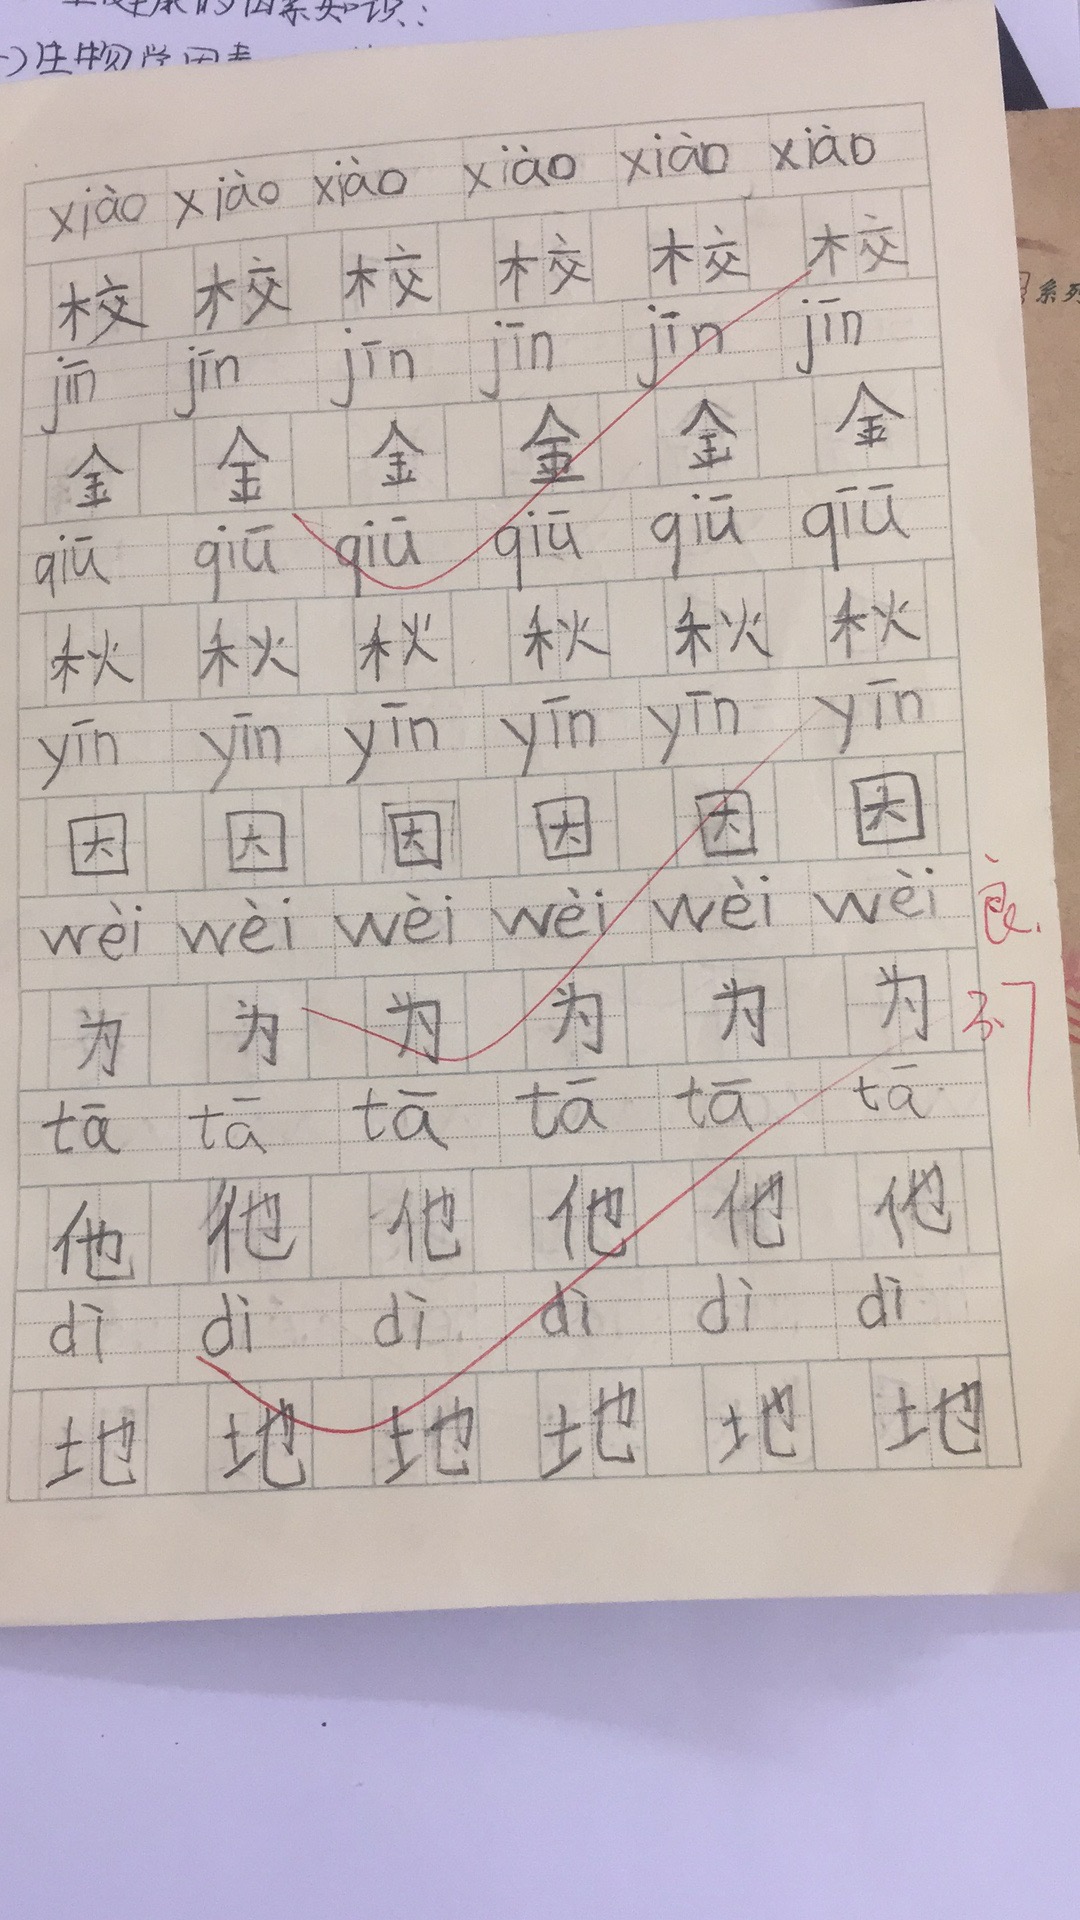 生物学因素
系列
xiào xiào xiào xiào xiào xiào
校 校 校 校 校 校
jīn jīn jīn jīn jīn jīn
金 金 金 金 金 金
qiū qiū qiū qiū qiū qīū
秋 秋 秋 秋 秋 秋
yīn yīn yīn yīn yīn yīn
因 因 因 因 因 因
wèi wèi wèi wèi wèi wèi
良.
为 为 为 为 为 为
3.7
tā tā tā tā tā tā
他 他 他 他 他 他
dì dì dì dì dì dì
地 地 地 地 地 地